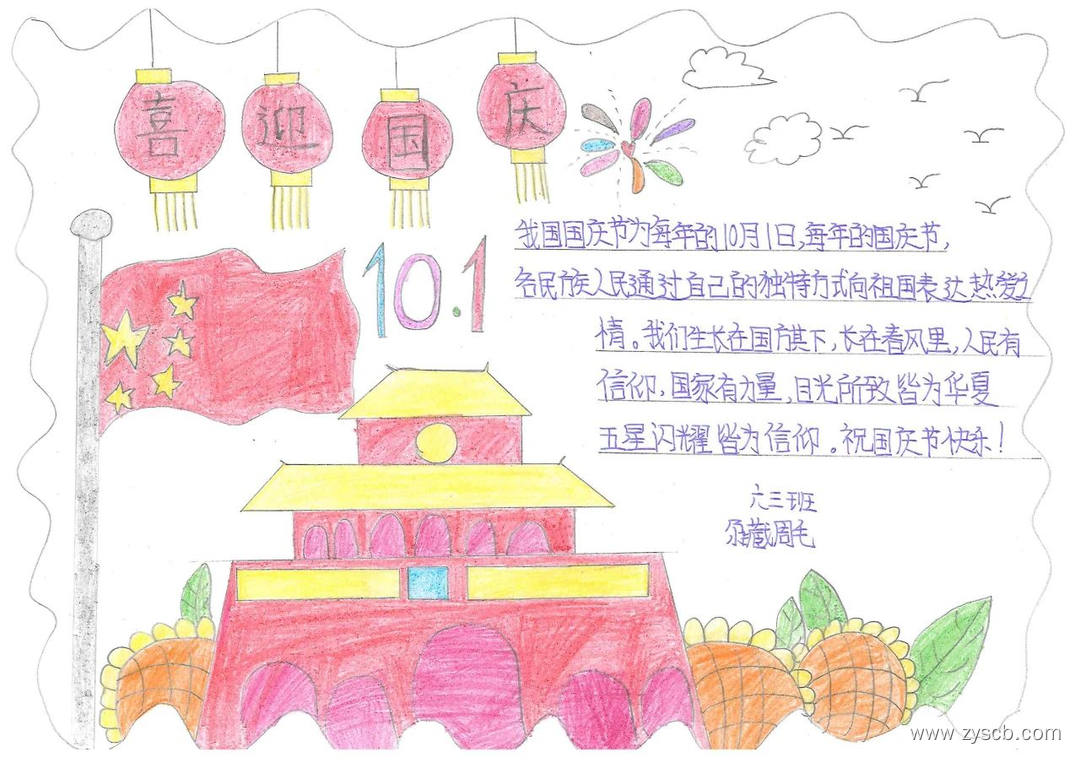 喜迎国庆
10.1
我国国庆节为每年的10月1日,每年的国庆节,
各民族人民通过自己的独特方式向祖国表达热爱之
情。我们生长在国旗下,长在春风里,人民有
信仰,国家有力量,目光所致皆为华夏
五星闪耀皆为信仰。祝国庆节快乐!
六三班
周毛
www.zyscb.com